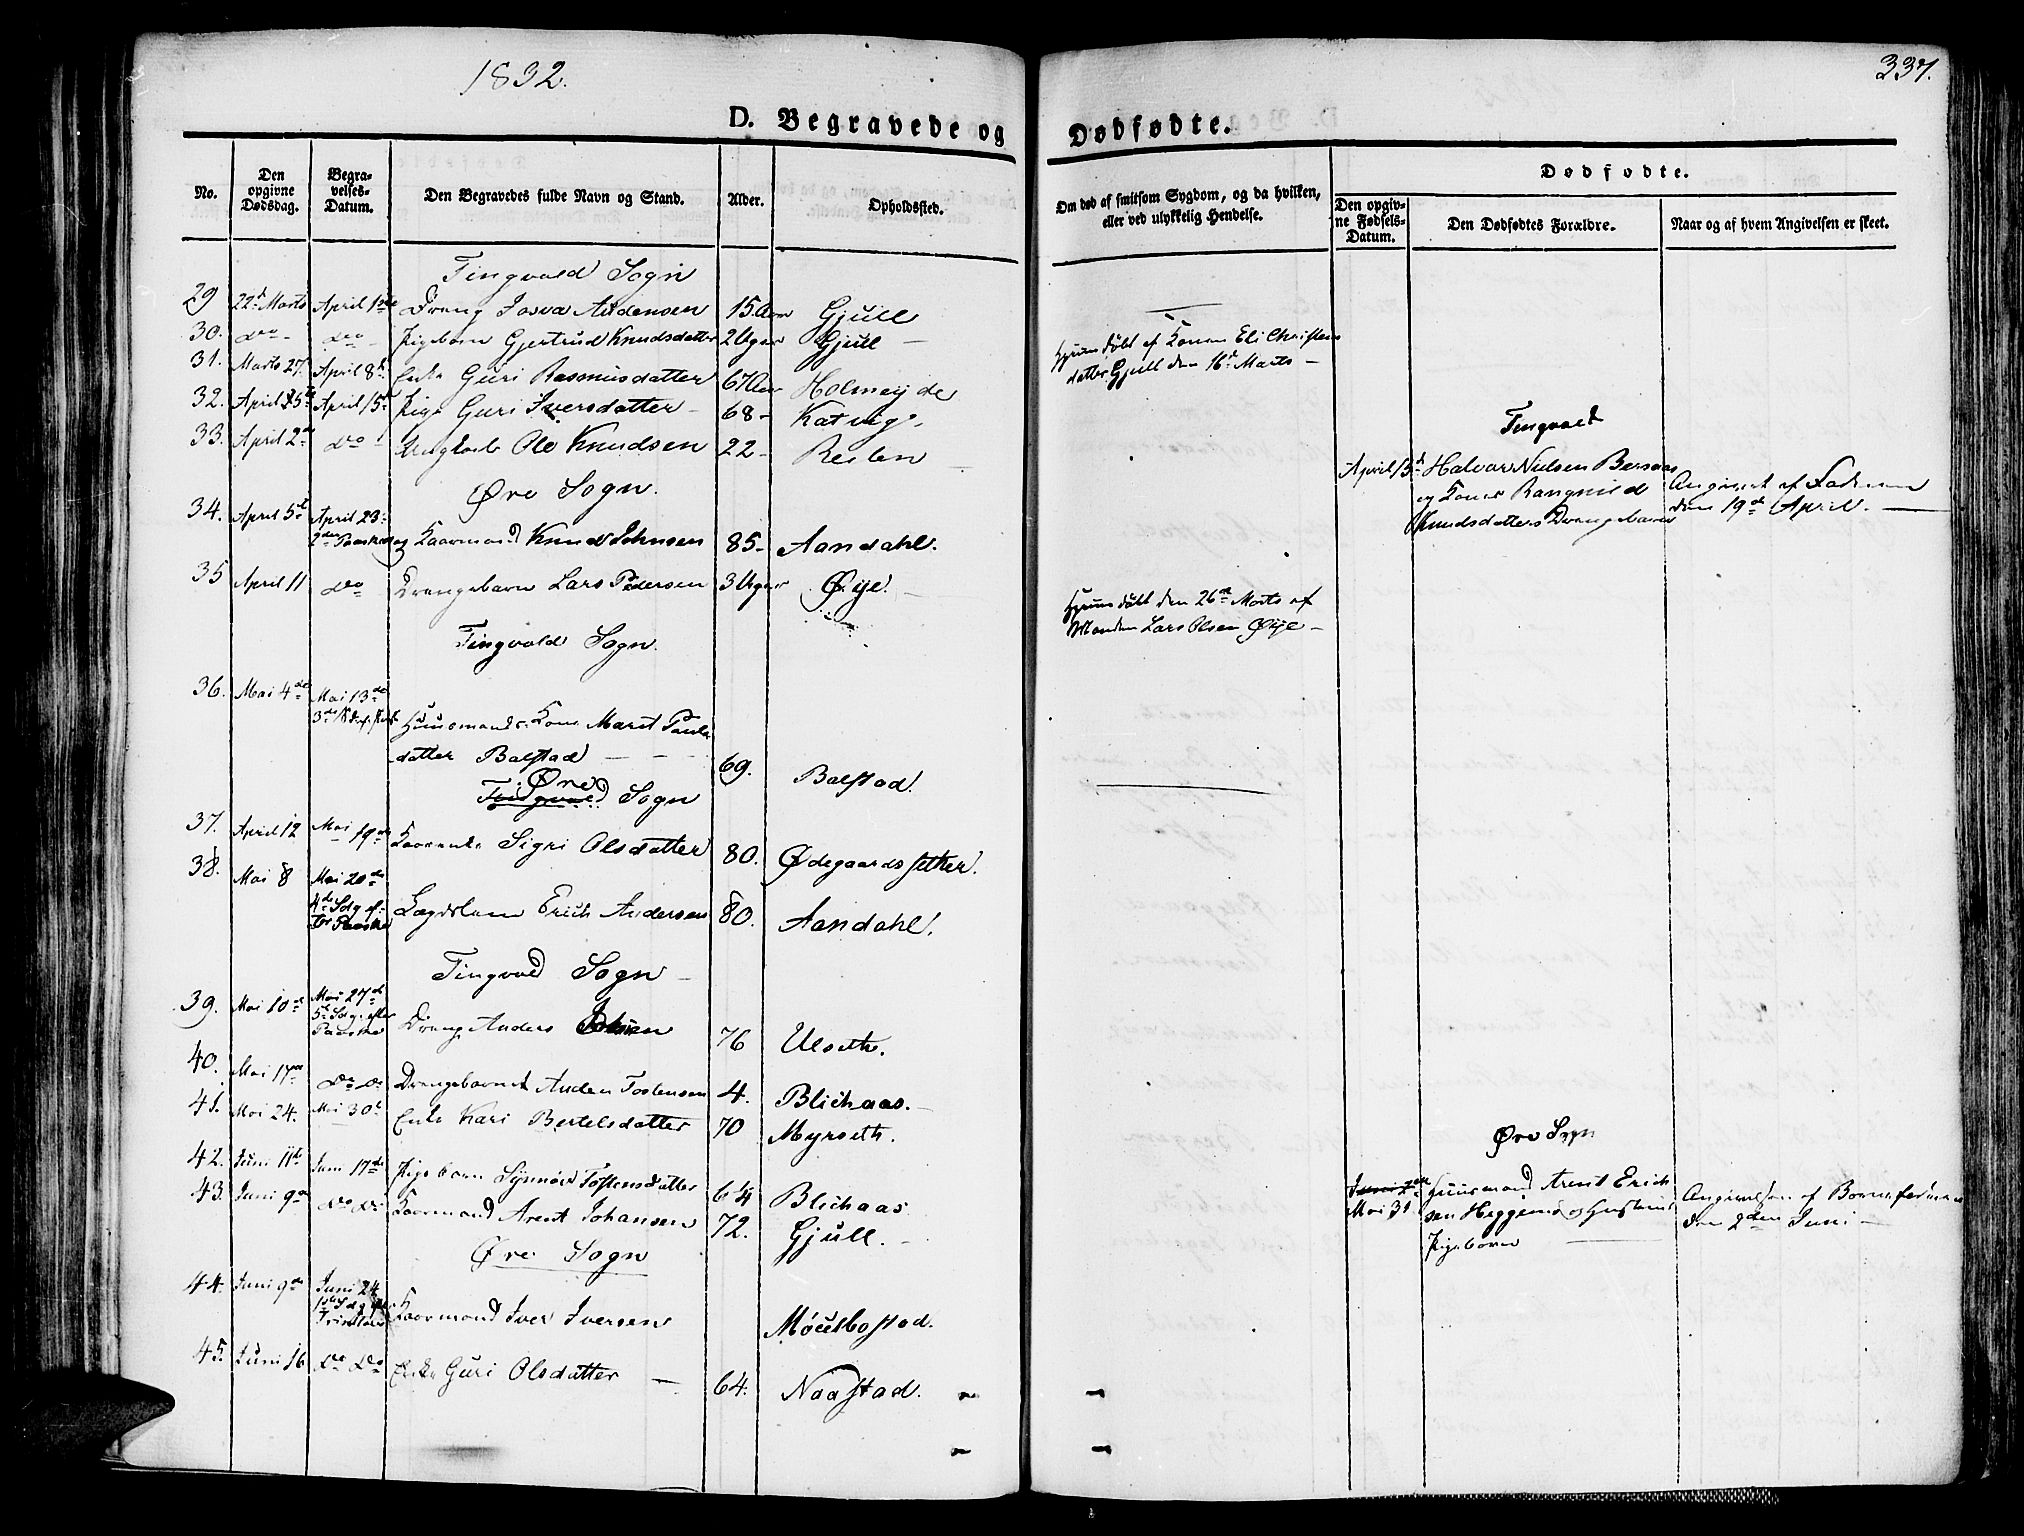 1832.
337.
D. Begravede og Dødfødte.
No.
Den opgivne Dødsdag.
Begravelses-Datum.
Den Begravedes fulde Navn og Stand.
Alder.
Opholdssted.
Om død af smitsom Sygdom, og da hvilken, eller ved ulykkelig Hendelse.
Dødfødte.
Den opgivne Fødsels-Datum.
Den Dødfødtes Forældre.
Naar og af hvem Angivelsen er skeet.
Tingvold Sogn
29 22d Marts April 1ste Dreng Josva Andensen 15 Aar Gjull
30. dto dto Pigebarn Gjertrud Knudsdatter 2 Uger Gjull
Hjemmedøbt af Konen Eli Christens
datter Gjull den 16d Marts
31. Marts 27. April 8d Enke Guri Rasmusdatter 67 Aar Holmeijde
32. April 5te April 15d Pige Guri Iversdatter 68 Katvig
33. April 2den dto Ole Knudsen 22 Reslen
Øre Sogn.
34. April 5t April 23 2den Paaskedag Kaarmand Knud Johnsen 85 Aandahl.
35 April 11 dto Drengebarn Lars Pedersen 3 Uger Øije
Hjemmedøbt den 26de Marts af
Manden Lars Olsen Øije
Tingvold Sogn.
36. Mai 4de Mai 13de
Huusmands Kone Marit Pauls
datter Balstad 69. Balstad.
Øre
Tingvold Sogn
37. April 12 Mai 19de Kaarenke Sigri Olsdatter 80. Ødegaardssether.
38. Mai 8 Mai 20de
4de Sdg ef: Paaske Lægdslem Erich Andersen 80. Aandahl.
Tingvold Sogn
39. Mai 10de Mai 27de
5te Sdg. efter
Paaske Dreng Anders 76 Ulseth.
40. Mai 17de do do Drengebarnet Anden Tostensen 4. Blichaas.
41. Mai 24. Mai 30te Enke Kari Bertelsdatter 70 Myrseth.
42. Juni 11te Juni 17de Pigebarn Synnøv Tostensdatter 6 Blichaas
43. Juni 9de do do Kaarmand Arent Johansen 72. Gjull.
Øre Sogn
44. Juni 9de Juni 24
1ste Sdg efter
Trinitatis Kaarmand Iver Iversen Møcelbostad.
45. Juni 16 do do Enke Guri Olsdatter 64. Naastad.
Tingvold
April 15d Halvor Nielsen Bersaas
og Kone Rangnild
Knudsdatters Drengebarn
Angivet af Faderen
den 19de April.
Øre Sogn
Juni 2den
Mai 31 Huusmand Arent Erich
sen Heggem og
Pigebarn
Angivelsen af Barnefaderen
den 2den Juni